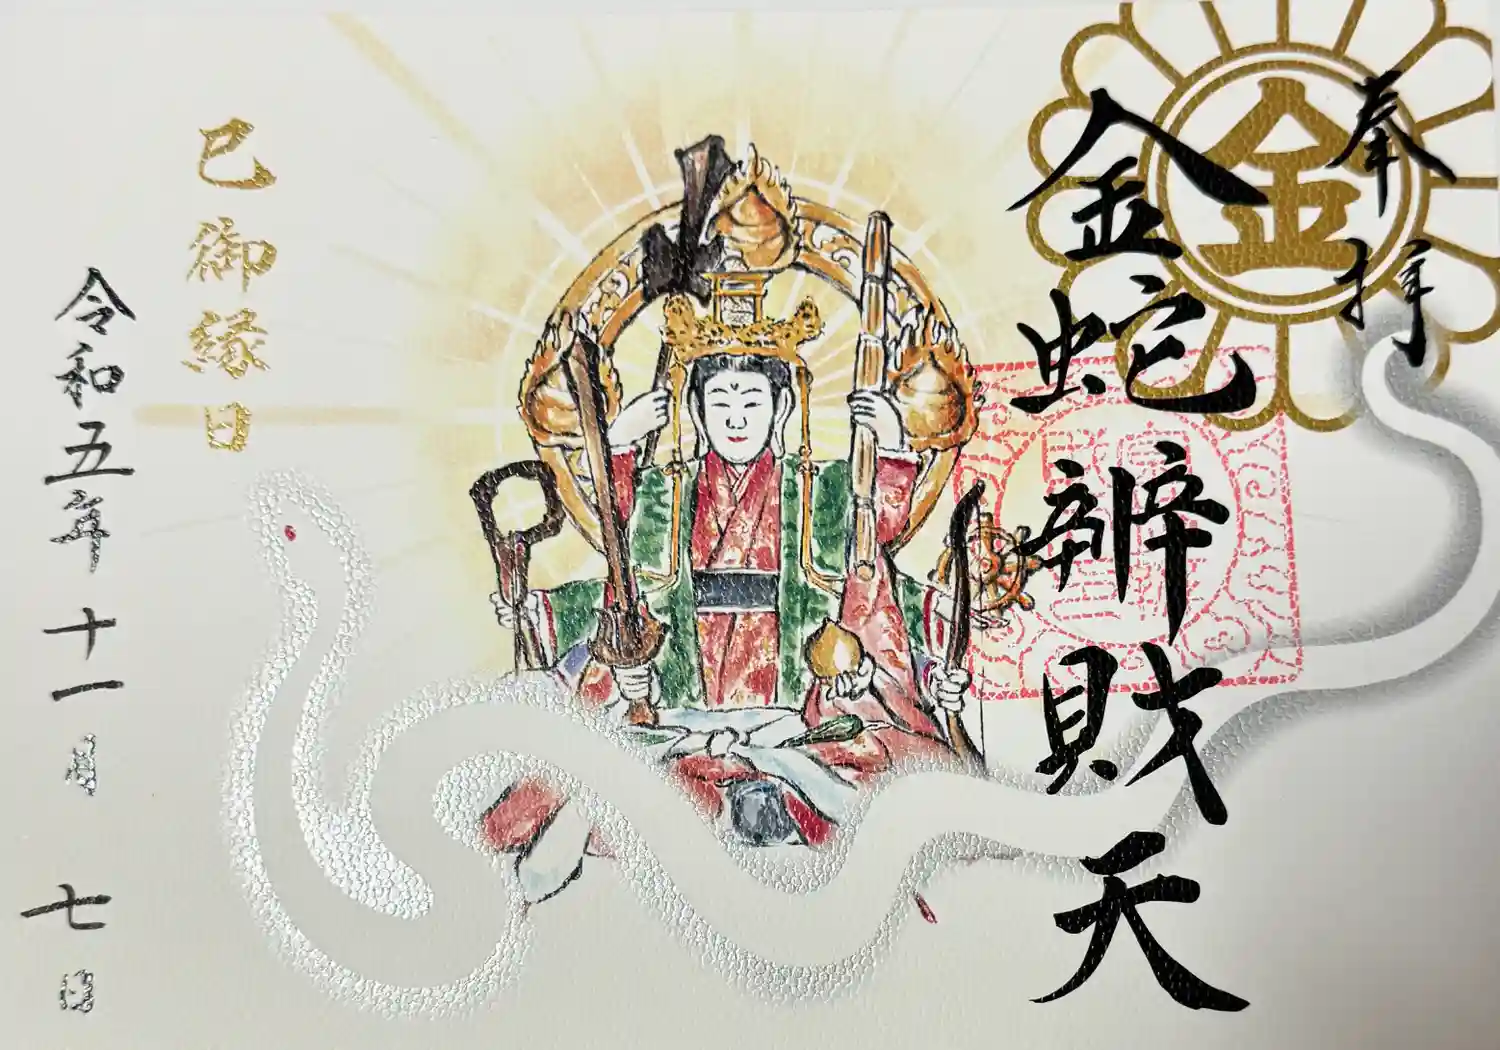 奉拝
金
金蛇辨財天
巳御縁日
令和五年十一月七日